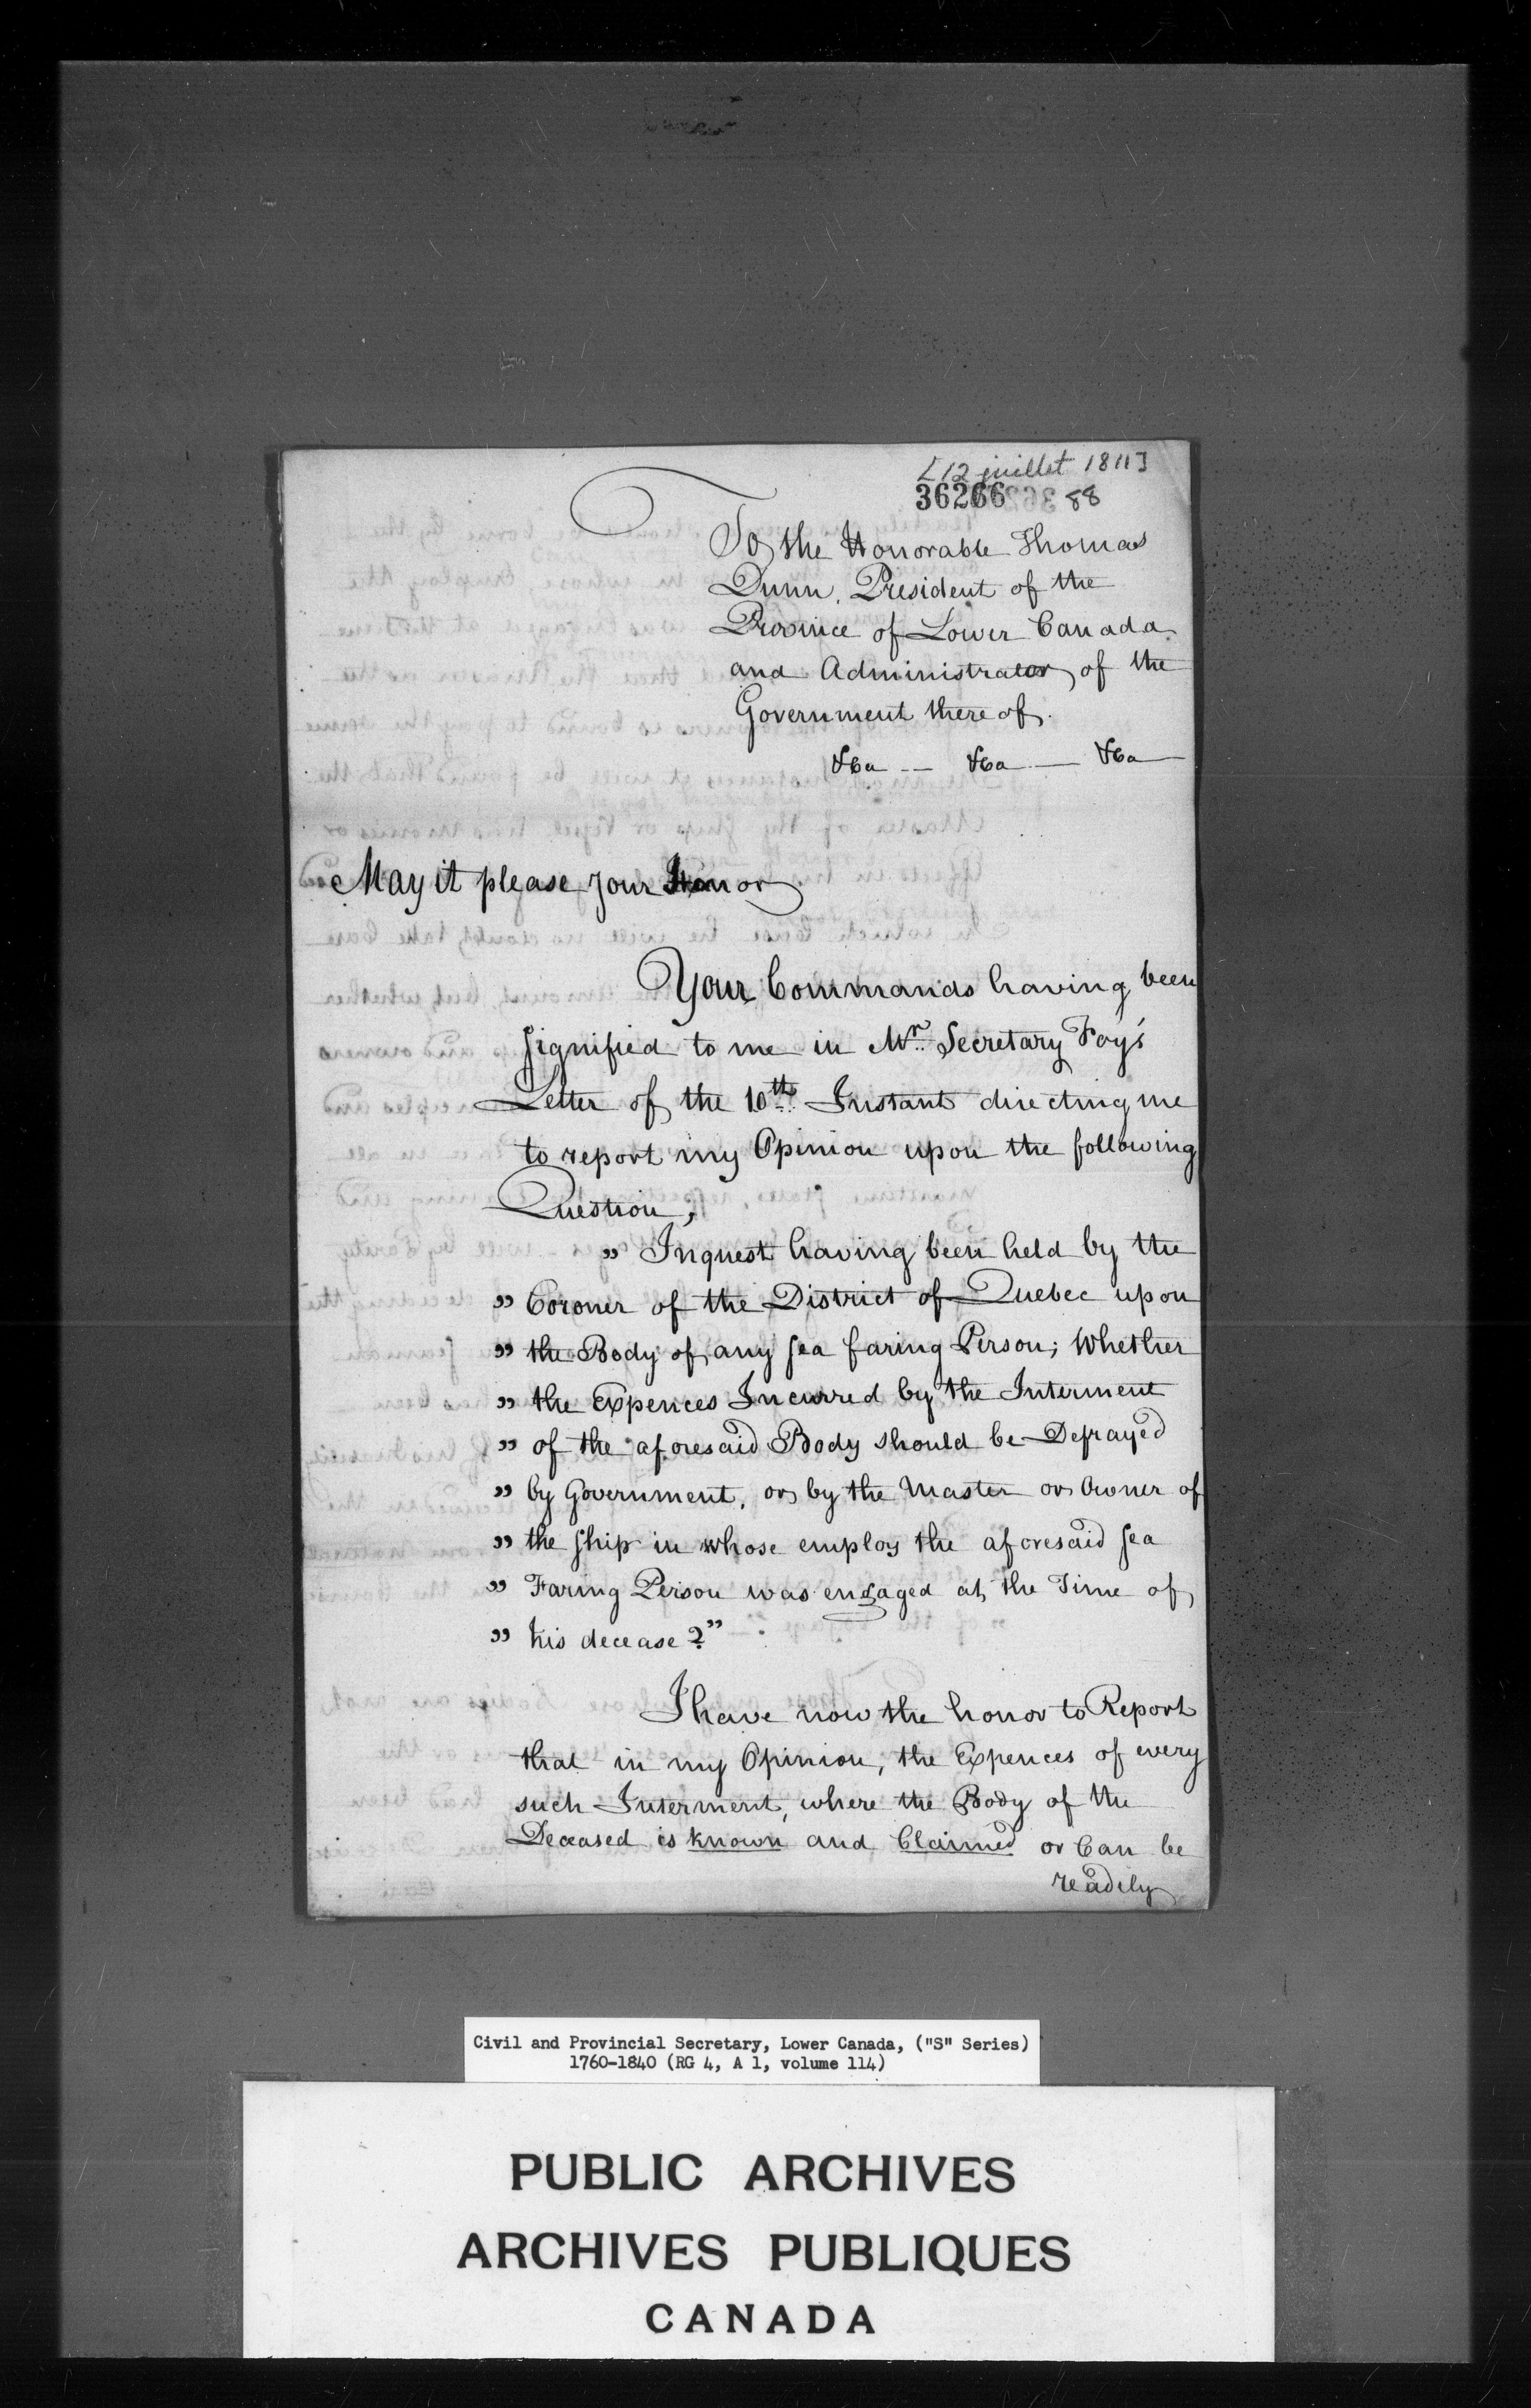 [12 juillet 1811]
36266 88
To the Honorable Thomas
Dunn, President of the
Province of Lower Canada
and Administrator of the
Government there of.
&ca -- &ca — &ca —
May it please your Honor
Your Commands having been
signified to me in Mr. Secretary Foy's
Letter of the 10th. Instant directing me
to report my Opinion upon the following
Question,
" Inquest having been held by the
" Coroner of the District of Quebec upon
" the Body of any sea faring Person; Whether
" the Expences Incurred by the Interment
" of the aforesaid Body should be Defrayed
" by Government, or by the Master or Owner of
" the ship in whose employ the aforesaid sea
" Faring Person was engaged at the Time of
" his decease?"
I have now the honor to Report
that in my Opinion, the Expences of every
such Interment, where the Body of the
Deceased is known and Claimed or Can be
readily
Civil and Provincial Secretary, Lower Canada, ("S" Series)
1760-1840 (RG 4, A 1, volume 114)
PUBLIC ARCHIVES
ARCHIVES PUBLIQUES
CANADA